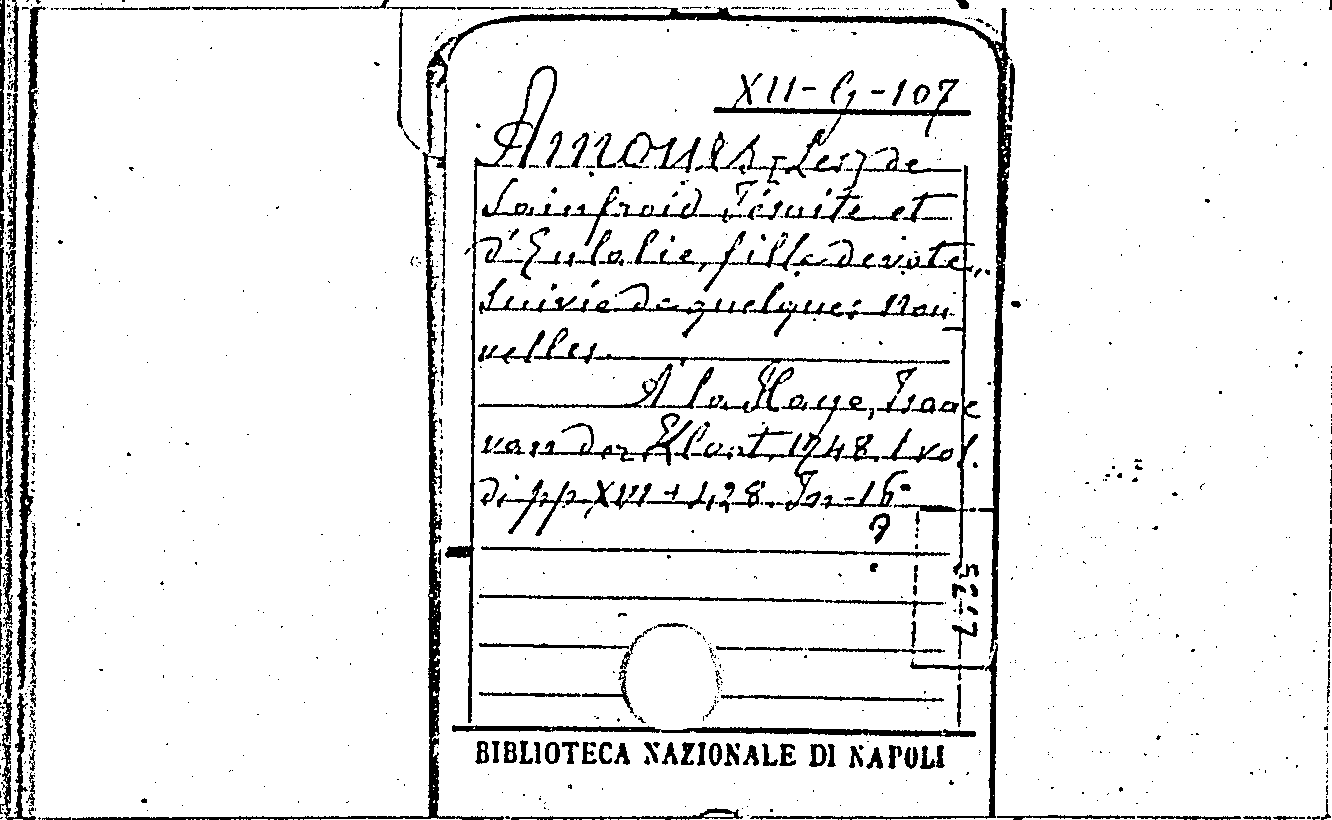 XII-G-107
Amours (Les) de
Sainfroid Jésuite et
d'Eulalie, fille devote,
Suivie de quelques Nou_
velles.
A la Haye, Isaac
van der Kloot, 1748. 1 vol.
di pp. XVI + 128. In-16°
BIBLIOTECA NAZIONALE DI NAPOLI